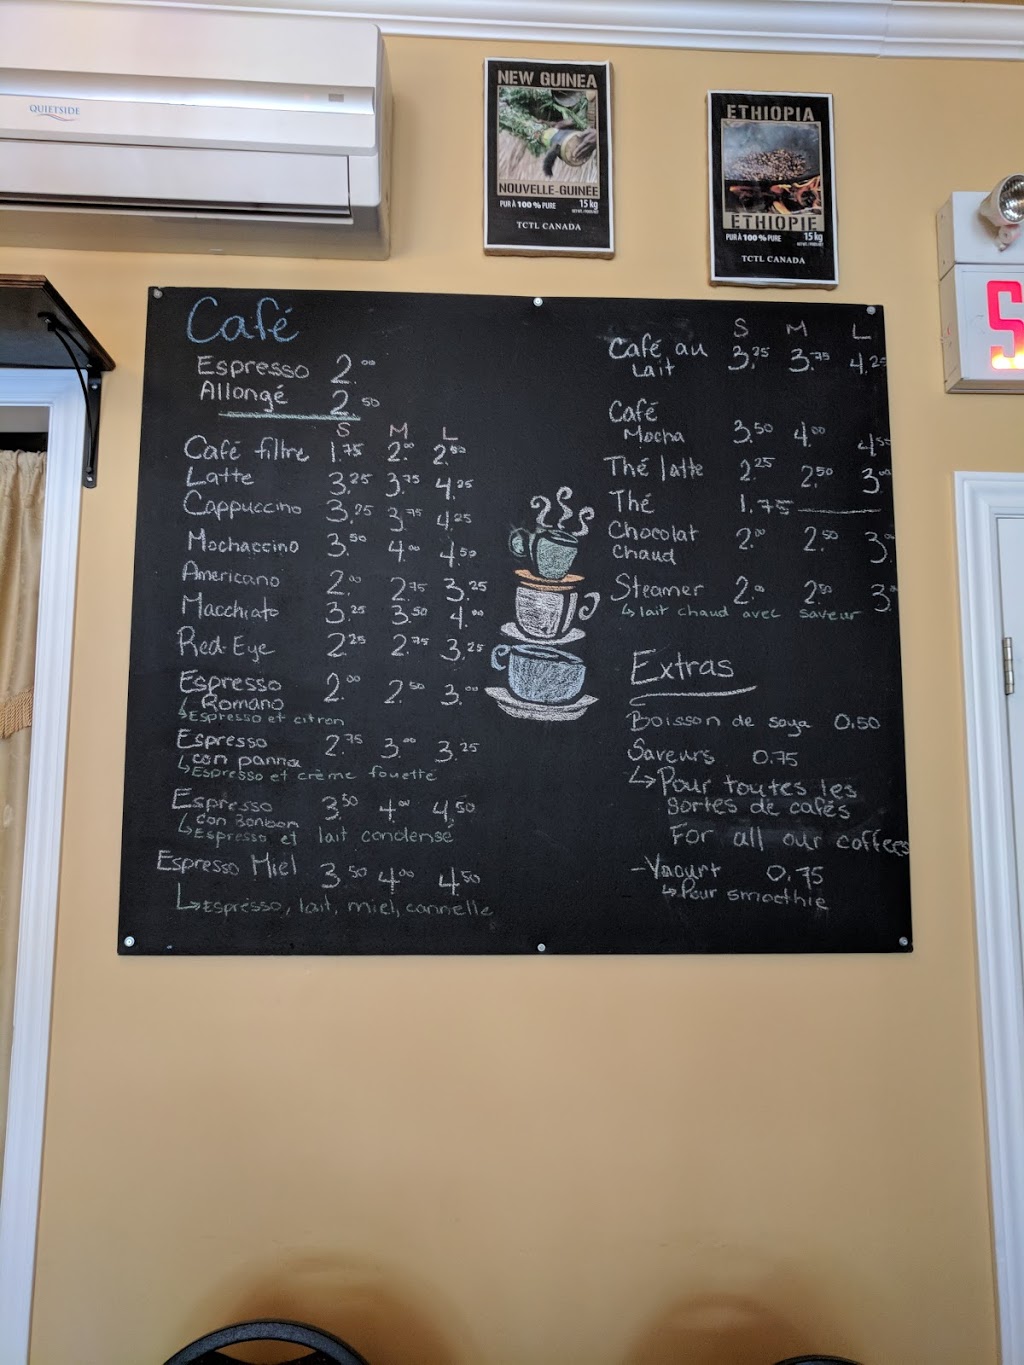 QUIETSIDE
NEW GUINEA
NOUVELLE-GUINÉE
PUR À 100 % PURE 15 kg
TCTL CANADA
ETHIOPIA
ÉTHIOPIE
PUR À 100 % PURE 15 kg
TCTL CANADA
S
Café
Espresso 2.00
Allongé 2.50
S M L
Café filtre 1.75 2.00 2.50
Latte 3.25 3.75 4.25
Cappuccino 3.25 3.75 4.25
Mochaccino 3.50 4.00 4.50
Americano 2.00 2.75 3.25
Macchiato 3.25 3.50 4.00
Red-Eye 2.25 2.75 3.25
Espresso 2.00 2.50 3.00
Romano
↳ Espresso et citron
Espresso 2.75 3.00 3.25
con panna
↳ Espresso et crème fouetté
Espresso 3.50 4.00 4.50
con Bonbom
↳ Espresso et lait condensé
Espresso Miel 3.50 4.00 4.50
↳ Espresso, lait, miel, cannelle
S M L
Café au 3.75 3.75 4.25
Lait
Café
Mocha 3.50 4.00 4.50
Thé latte 2.25 2.50 3.00
Thé 1.75
Chocolat 2.00 2.50 3.
Chaud
Steamer 2.00 2.50 3.
↳ lait chaud avec saveur
Extras
Boisson de soya 0.50
Saveurs 0.75
↳ Pour toutes les
sortes de cafés
For all our coffees
- Yaourt 0.75
↳ Pour smoothie